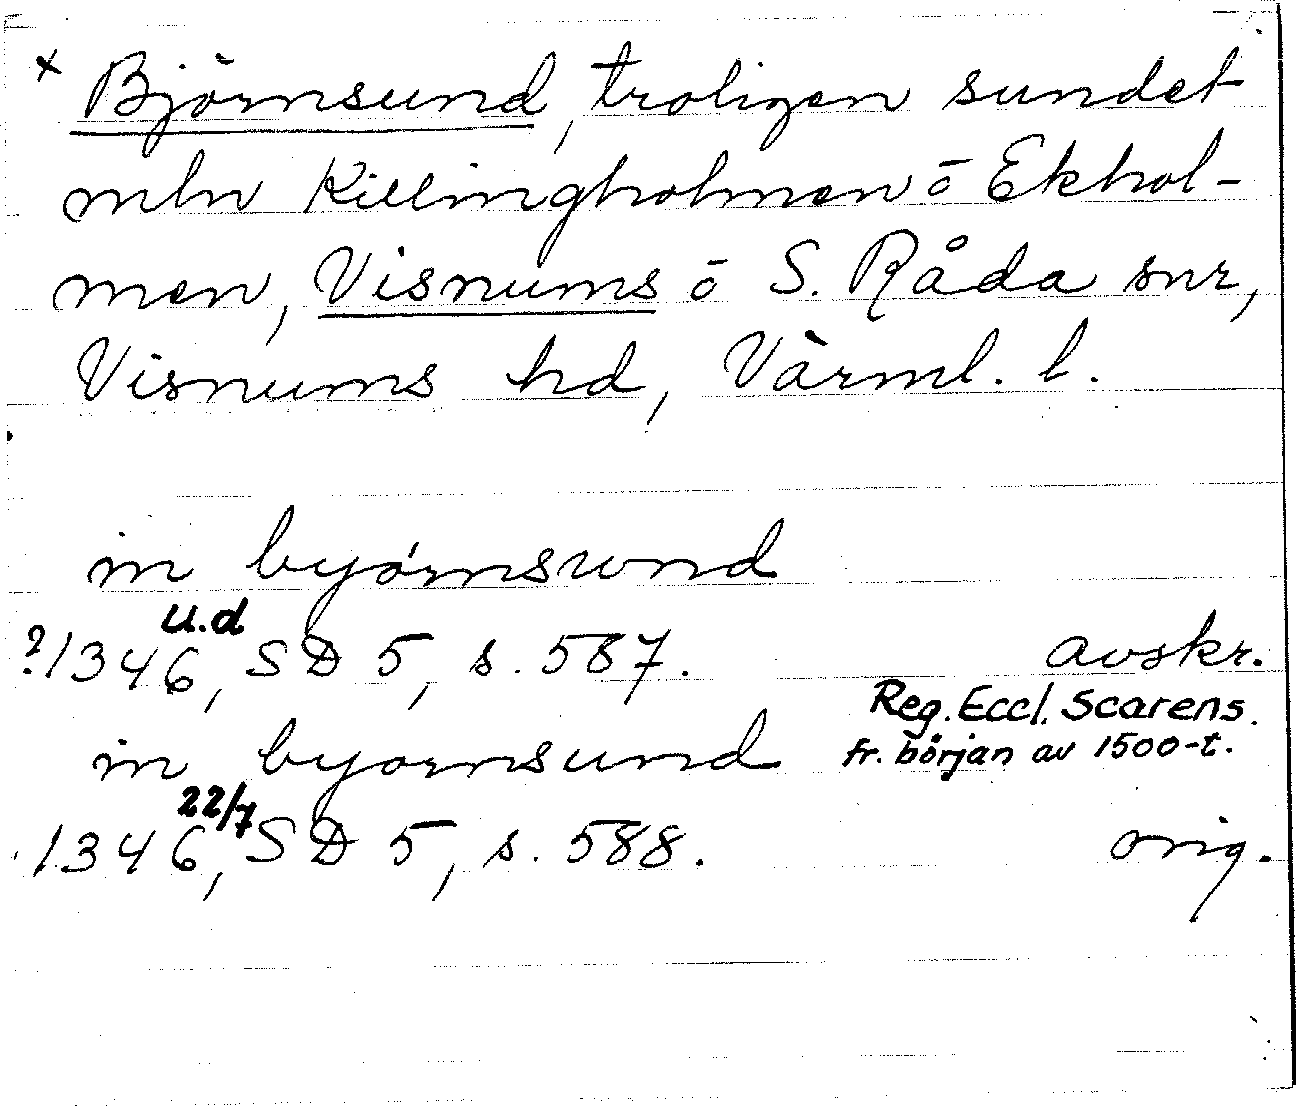 x Björnsund, troligen sundet
mln Killingholmen o Ekhol-
men, Visnums o S. Råda snr,
Visnums hd, Värml. l.
in byørnswnd
u.d
?1346, SD 5, s. 587. avskr.
Reg. Eccl. Scarens.
fr. början av 1500-t.
in byornsund
22/7
1346, SD 5, s. 588. orig.